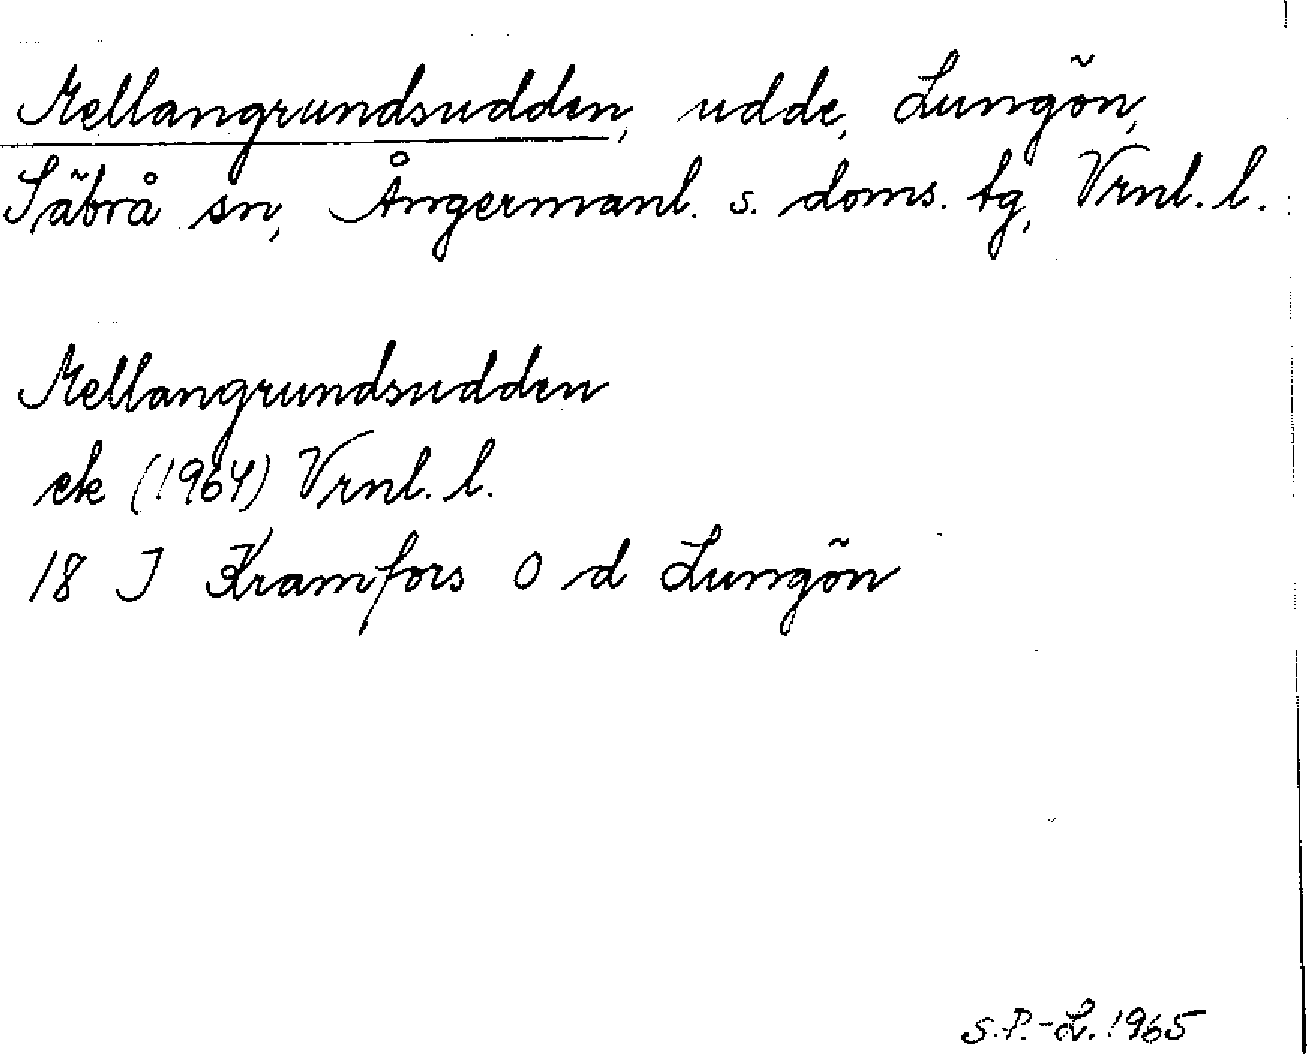 Mellangrundsudden, udde, Lungön,
Säbrå sn, Ångermanl. s. doms. tg, Vrnl. l.
Mellangrundsudden
ek (1964) Vrnl. l.
18 J Kramfors O d Lungön
S.P.-L. 1965